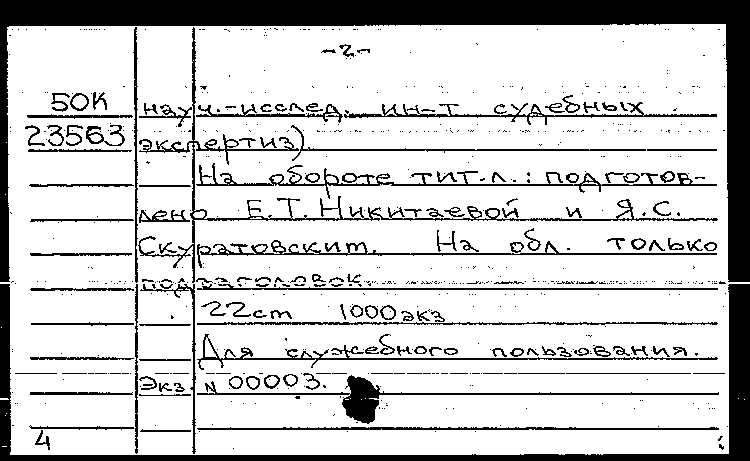 -2-
50К науч.-исслед. ин-т судебных
23563 экспертиз).
На обороте тит.л.: подготов-
лено Е.Т. Никитаевой и Я.С.
Скуратовским. На обл. только
подзаголовок.
22cm 1000экз
Для служебного пользования.
Экз. N 00003.
4